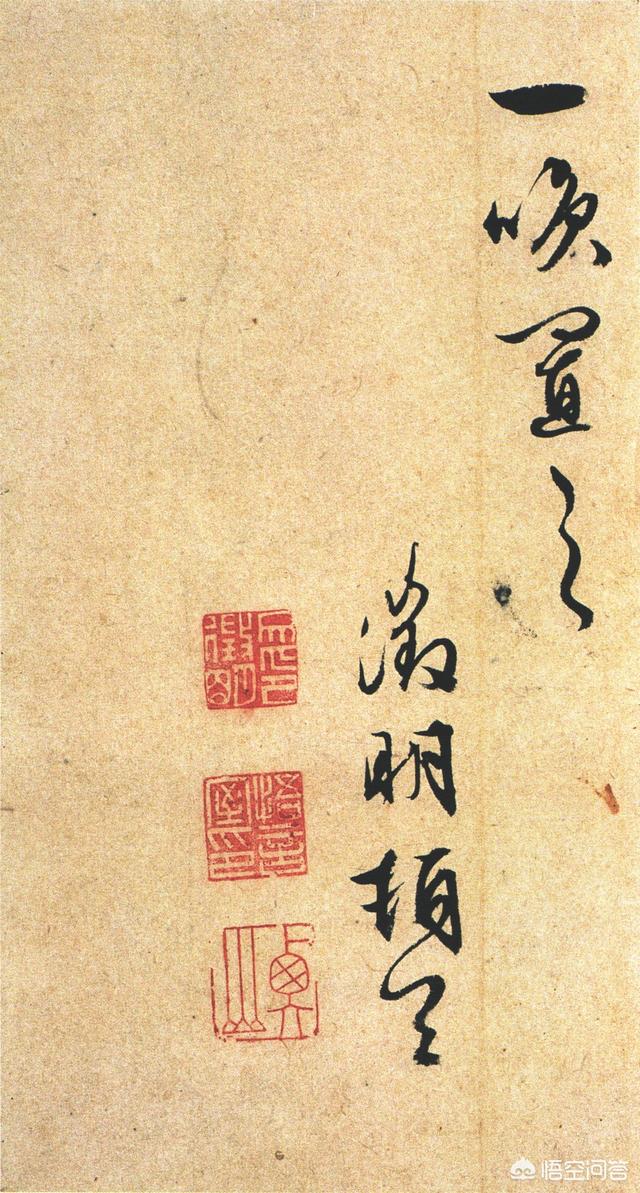 一咲置之
徵明頓首
悟空问答